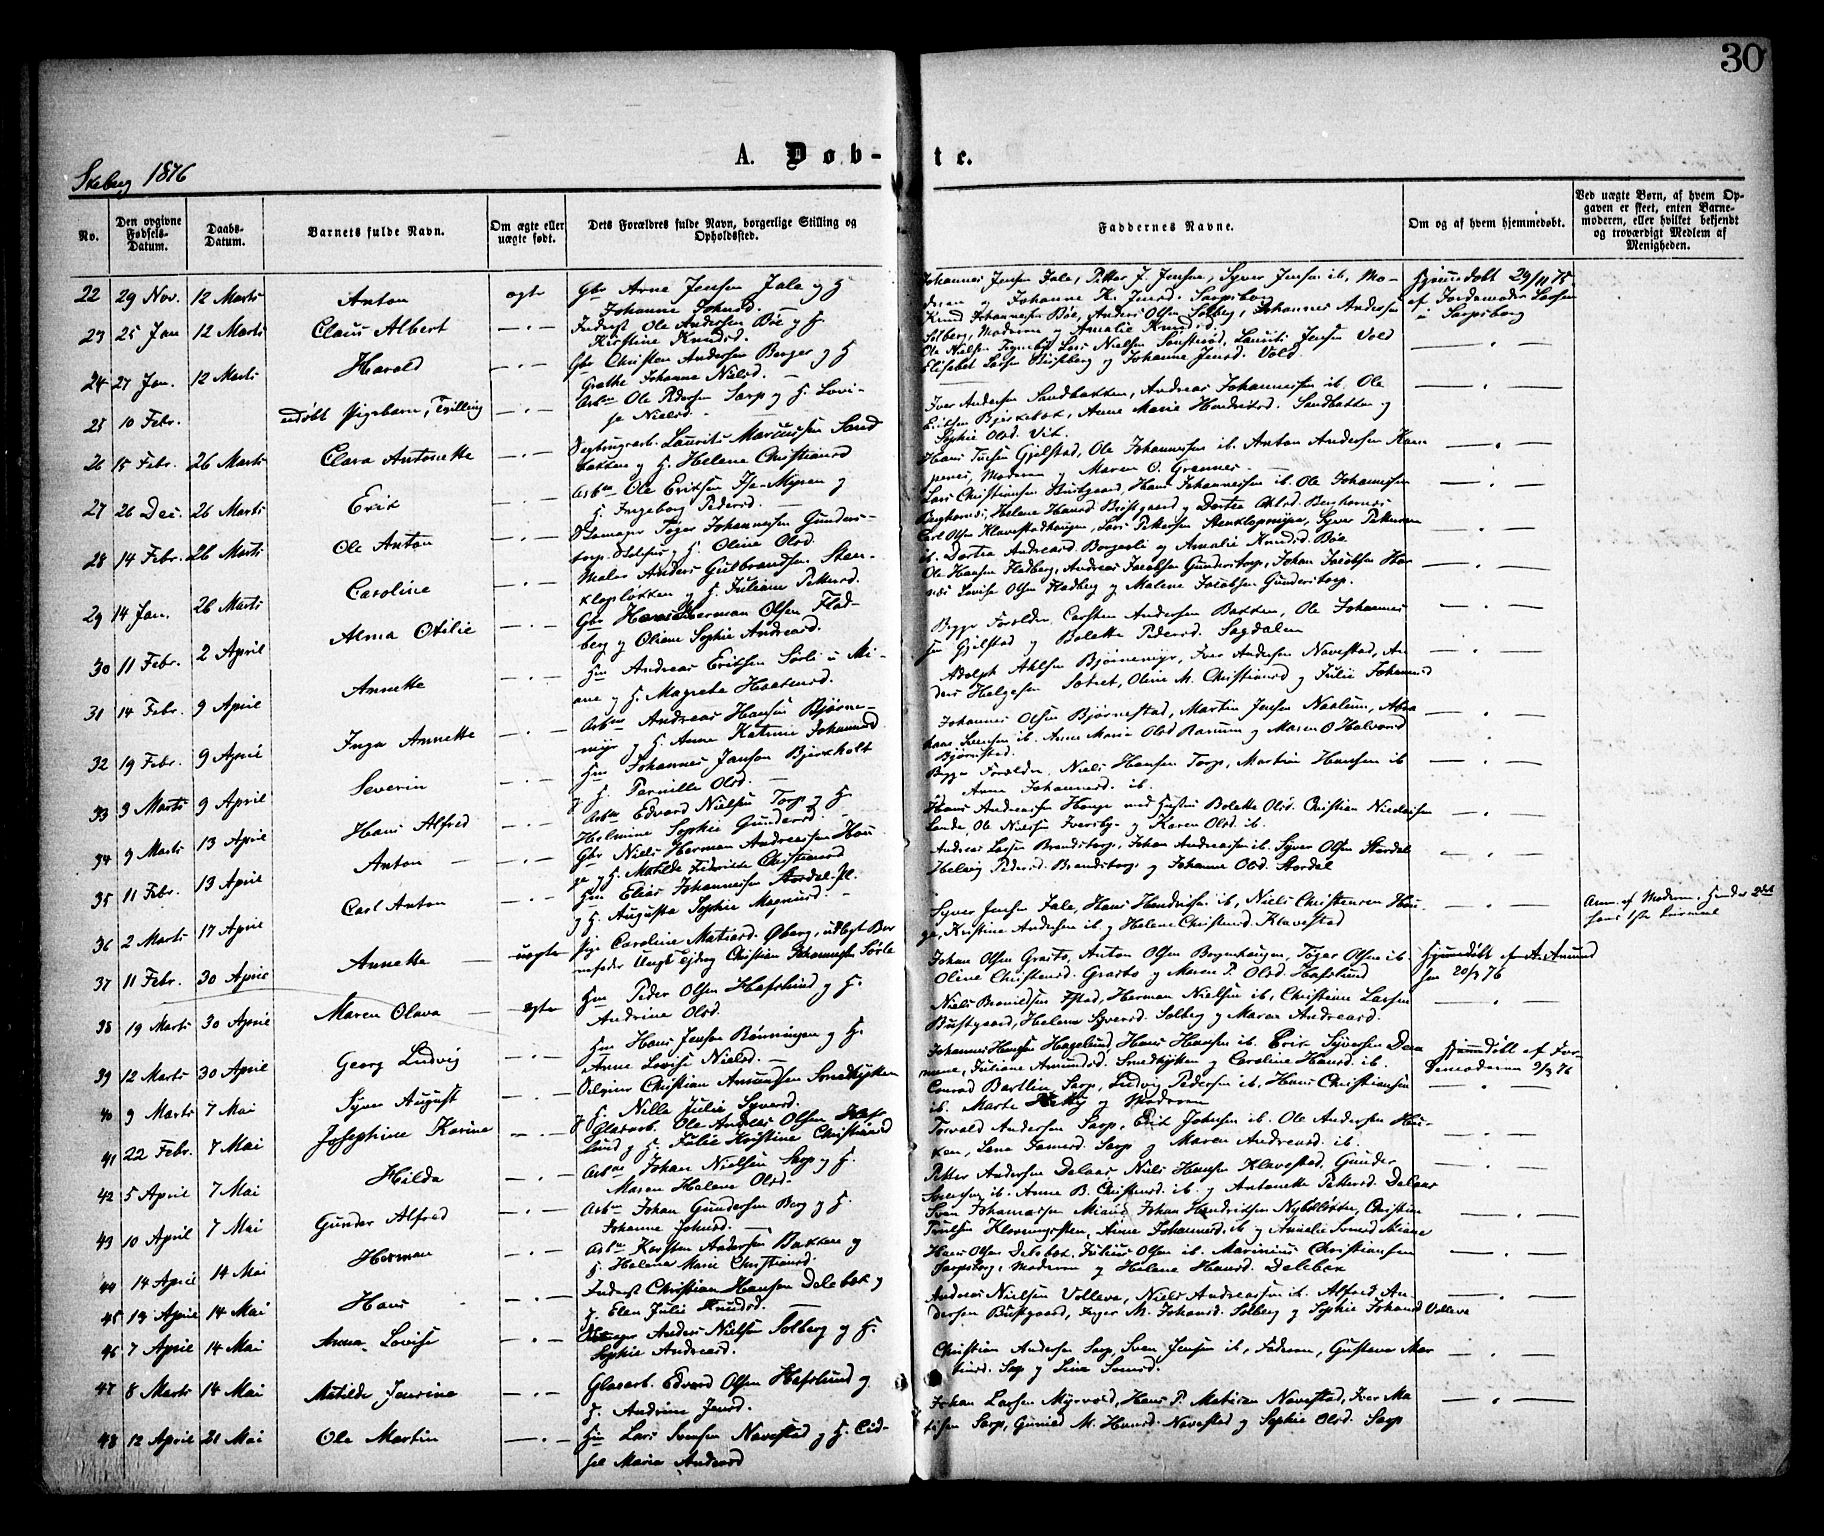 30
A. Døb- te.
Skeberg 1876
No.
Den opgivne Fødsels-Datum.
Daabs-Datum.
Barnets fulde Navn.
Om ægte eller uægte født.
Dets Forældres fulde Navn, borgerlige Stilling og Opholdssted.
Faddernes Navne.
Om og af hvem hjemmedøbt.
Ved uægte Børn, af hvem Opgaven er skeet, enten Barnemoderen, eller hvilket bekjendt og troværdigt Medlem af Menigheden.
22 29 Nov. 12 Marts Anton ægte Gbr Arne Jensen Jale og H. Johanne Johnsd. Johannes Jensen Jale, Petter J. Jensen, Syver Jensen ib, Moderen og Johanne K. Jensd. Sarpsborg Hjemmedøbt 29/11 75 af Jordemoder Larsen i Sarpsborg
23 25 Jan 12 Marts Claus Albert Inderst Ole Andersen Bøe og H. Kirstine Knudsd. Knud Johannesen Bøe, Anders Olsen Solberg, Johannes Andersen Solberg, Moderen og Amalie Knudsd.
24 27 Jan. 12 Marts Harald Gbr Christen Andersen Berger og H Grethe Johanne Nielsd. Ole Nielsen Lars Nielsen Laurits Jensen Vold Elisabet Larsen Bustberg og Johanne Jensd. Vold
25 10 Febr. udøbt Pigebarn, Tvilling Arbm Ole Pedersen Sarp og H. Lovise Nielsd. Iver Andersen Sandbakken, Andreas Johannesen ib. Ole Eriksen Bjerkebæk, Anne Marie Hendriksd. Sandbakken og Sophie Olsd. Vik.
26 15 Febr. 26 Marts Clara Antonette Laurits Marcussen Sandbakken og H. Helene Christiansd Hans Gjelstad, Ole Johannesen ib. Anton Andersen Moderen og Maren O. Grønnes
27 26 Des. 26 Marts Erik Arbm Ole Eriksen Ise-Myren og H. Ingeborg Pedersd. Lars Christiansen Bustgaard, Hans Johannesen ib. Ole Johannesen Helene Hansd Bustgaard og Dortea Olsd.
28 14 Febr. 26 Marts Ole Anton Skomager Tøger Johannesen Gunderstorp og H. Oline Olsd. Carl Olsen Klavestadhaugen, Lars Pettersen Stenklepmyren, Syver Pettersen ib. Dortea Andreasd Borgerli og Amalie Knudsd. Bøe
29 14 Jan. 26 Marts Caroline Maler Anders Gulbrandsen Stenkleppløkken og H. Juliane Pettersd. Ole Hansen Fladberg, Andreas Jacobsen Gunderstorp, Johan Jacobsen Lovise Olsen Fladberg og Malene Jacobsen Gunderstorp.
30 11 Febr. 2 April Alma Otilie Gbr Herman Olsen Fladberg og Oliane Sophie Andreasd. Begge Forældre, Carsten Andersen Bakken, Ole Johannesen Gjelstad og Bolette Pedersd. Sagdalen
31 14 Febr. 9 April Annette Hm Andreas Eriksen Sørli i Miane og H. Magrete Adolph Ahlsen Bjørnemyr, Iver Andersen Navestad, Anders Helgesen Sætret, Oline M. Christiansd og Julie Johannesd
32 19 Febr. 9 April Inga Annette Arbm Andreas Hansen Bjørnemyr og H. Anne Katrine Johannesd Johannes Olsen Bjørnestad, Martin Jensen Naalum, Anne Marie Olsd og Maren O Halvorsd Bjørnstad.
33 3 Marts 9 April Severin Hm Johannes Jansen Bjerkholt og H. Pernille Olsd. Begge Forældre, Niels Hansen Torp, Martin Hansen ib og Anne Johannesd. ib.
34 3 Marts 13 April Hans Alfred Arbm Edvard Nielsen Torp og H. Helmine Sophie Gundersd. Hans Andreasen Hauge med Hustru Bolette Olsd. Christian Nicolaisen Lande, Ole Nielsen Iversby og Karen Olsd. ib.
35 11 Febr. 13 April Anton Gbr Niels Herman Andreassen Hauge og H. Matilde Fredrikke Christiansd Andreas Larsen Brandstorp, Johan Andreassen ib. Syver Olsen Stordal Helvig Pedersd. Brandstorp og Johanne Olsd. Stordal
36 2 Marts 17 April Carl Anton Hm Elias Johannesen Stordal-pl. og H. Augusta Sophie Magnusd. Syver Jensen Jale, Hans Hendriksen ib, Niels Christensen Hauge, Kristine Andersen ib og Helene Christensd. Klavestad
37 11 Febr. 30 April Annette uægte Pige Caroline Matiasd. Øberg, udlagt Barnefader Ungk Ejdreg Christian Johannesen Sørle Johan Olsen Graats, Anton Olsen Borgenhaugen, Tøger Olsen ib. Oline Christensd. Graats og Maren P. Olsd. Hafslund Hjemmedøbt af A. Amundsen 20/2 76 Anm. af Moderen. Hendes 2det hans 1ste Leiermaal
38 19 Marts 30 April Maren Olava ægte Hm Peder Olsen Hafslund og H. Andrine Olsd. Niels Bronildsen Ystad, Herman Nielsen ib, Christine Larsen Bustgaard, Helene Syversd. Solberg og Maren Andreasd.
39 12 Marts 30 April Georg Ludvig Hm Hans Jensen Rønningen og H. Anne Lovise Nielsd. Johannes Hansen Hagelund, Hans Hansen ib. Erik Syversen Juliane Amundsd. Sandkjyken og Caroline Hansd. ib. Hjemmedøbt af Jordemoderen 2/3 76
40 9 Marts 7 Mai Syver August Christian Amundsen Sandkjyken og H. Nelle Julie Syversd. Conrad Bartlin Sarp, Ludvig Pedersen ib. Hans Christiansen ib. Marte og Moderen
41 22 Febr. 7 Mai Josephine Karine Glasarb. Ole Andreas Olsen Hafslund og H. Julie Kristine Christiansd Torvald Andersen Sarp, Erik Johnsen ib. Ole Andersen Lena Sarp og Maren Andreasd. ib.
42 5 April 7 Mai Hilda Arbm Johan Nielsen Sarp og H. Maren Helene Olsd. Petter Andersen Delaas Niels Hansen Klavestad, Gunder ib. Anne B. Christensd. ib. og Antonette Pettersd. Delaas
43 10 April 7 Mai Gunder Alfred Arbm Johan Gundersen Berg og H. Johanne Johnsd. Sven Johannesen Miane, Johan Hendriksen Christian Anne Johannesd. ib og Amalie Svensd Miane
44 14 April 14 Mai Herman Arbm Karsten Andersen Bakken og H. Helene Marie Christiansd Hans Olsen Delebæk, Julius Olsen ib. Marinius Christiansen Sarpsborg, Moderen og Helene Hansd. Delebæk
45 13 April 14 Mai Hans Inderst Christian Hansen Delebæk og H. Elen Julie Knudsd. Andreas Nielsen Volleve, Niels Andreassen ib. Alfred Andersen Bustgaard, Inger M. Johansd. Solberg og Sophie Johansd Volleve
46 7 April 14 Mai Anna Lovise Skomager Anders Nielsen Solberg og H. Sophie Andreasd. Christian Andersen Sarp, Sven Jensen ib, Faderen, Gustava Sarp og Lina Svensd
47 8 Marts 14 Mai Matilde Jensine Glasarb. Edvard Olsen Hafslund og H. Andrine Jensd. Johan Larsen Myrvold, Hans P. Matisen Navestad, Iver Matisen Sarp, Gunild M. Hansd. Navestad og Sophie Olsd. Sarp
48 12 April 21 Mai Ole Martin Hm Lars Svensen Navestad og H. Cidsel Marie Andersd